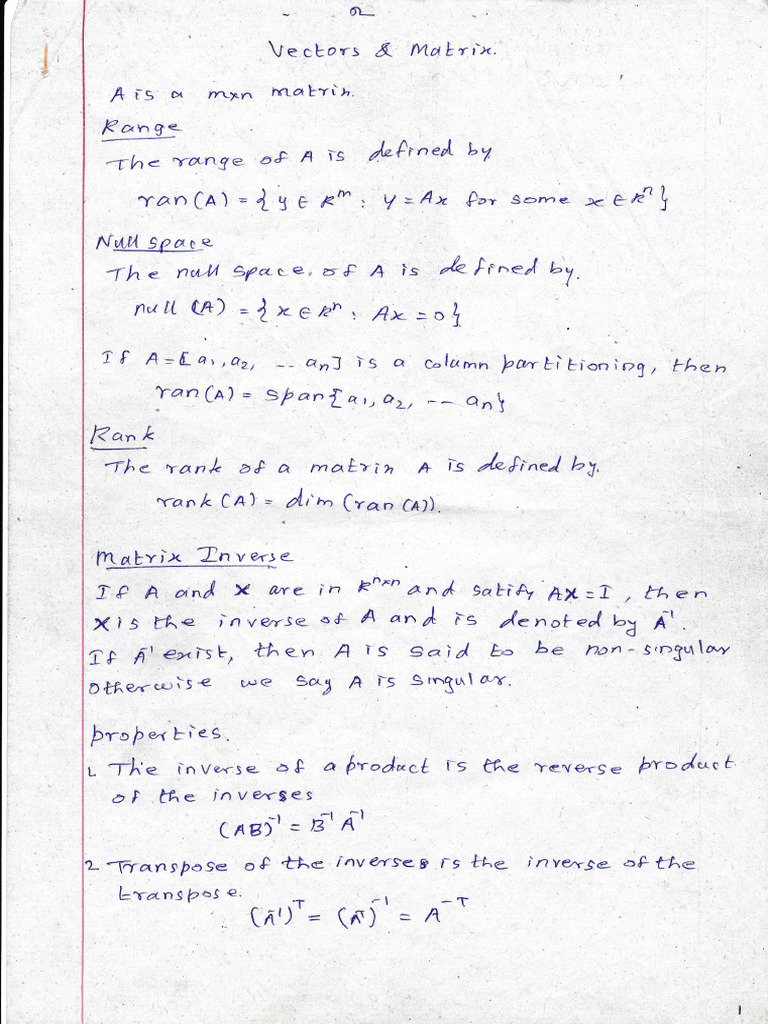 2
Vectors & Matrix.
A is a mxn matrix.
Range
The range of A is defined by
ran(A) = { y ∈ R^m : y = Ax for some x ∈ R^n }
Null space
The null space of A is defined by.
null (A) = { x ∈ R^n : Ax = 0 }
If A = [a1, a2, -- an] is a column partitioning, then
ran(A) = span{a1, a2, -- an}
Rank
The rank of a matrix A is defined by.
rank (A) = dim (ran (A)).
Matrix Inverse
If A and X are in R^nxn and satify AX = I, then
X is the inverse of A and is denoted by A^-1.
If A^-1 exist, then A is said to be non-singular
otherwise we say A is singular.
properties.
1. The inverse of a product is the reverse product
of the inverses
(AB)^-1 = B^-1 A^-1
2 Transpose of the inverses is the inverse of the
transpose.
(A^-1)^T = (A^T)^-1 = A^-T
1